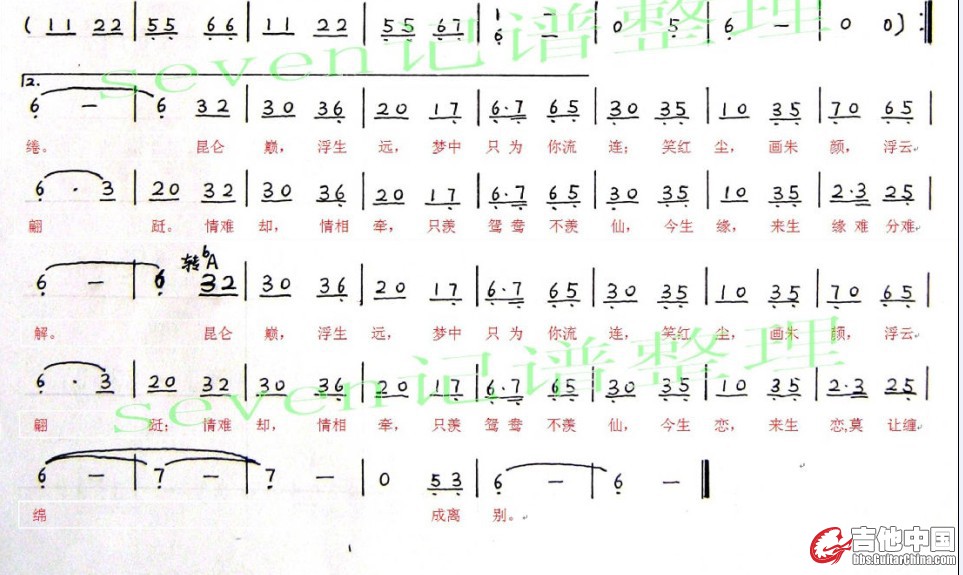 ( 11 22 | 55 66 | 11 22 | 55 67 | 1 6 – – | 0 5 | 6 – | 0 0 ) :||
seven记谱整理
2.
6 – | 6 32 | 30 36 | 20 17 | 6·7 65 | 30 35 | 10 35 | 70 65 |
绻。 昆仑 巅， 浮生 远， 梦中 只为 你流 连； 笑红 尘， 画朱 颜， 浮云
6 · 3 | 20 32 | 30 36 | 20 17 | 6·7 65 | 30 35 | 10 35 | 2·3 25 |
翩 跹。 情难 却， 情相 牵， 只羡 鸳鸯 不羡 仙， 今生 缘， 来生 缘难 分难
转bA
6 – | 6 32 | 30 36 | 20 17 | 6·7 65 | 30 35 | 10 35 | 70 65 |
解。 昆仑 巅， 浮生 远， 梦中 只为 你流 连； 笑红 尘， 画朱 颜， 浮云
seven记谱整理
6 · 3 | 20 32 | 30 36 | 20 17 | 6·7 65 | 30 35 | 10 35 | 2·3 25 |
翩 跹； 情难 却， 情相 牵， 只羡 鸳鸯 不羡 仙， 今生 恋， 来生 恋,莫 让缠
6 – | 7 – | 7 – | 0 53 | 6 – | 6 – ||
绵 成离 别。
吉他中国
bbs.GuitarChina.com